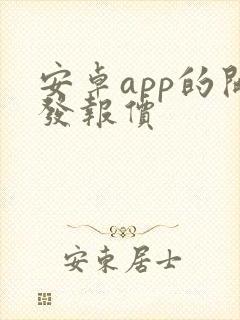 安卓app的開
發報價
安東居士